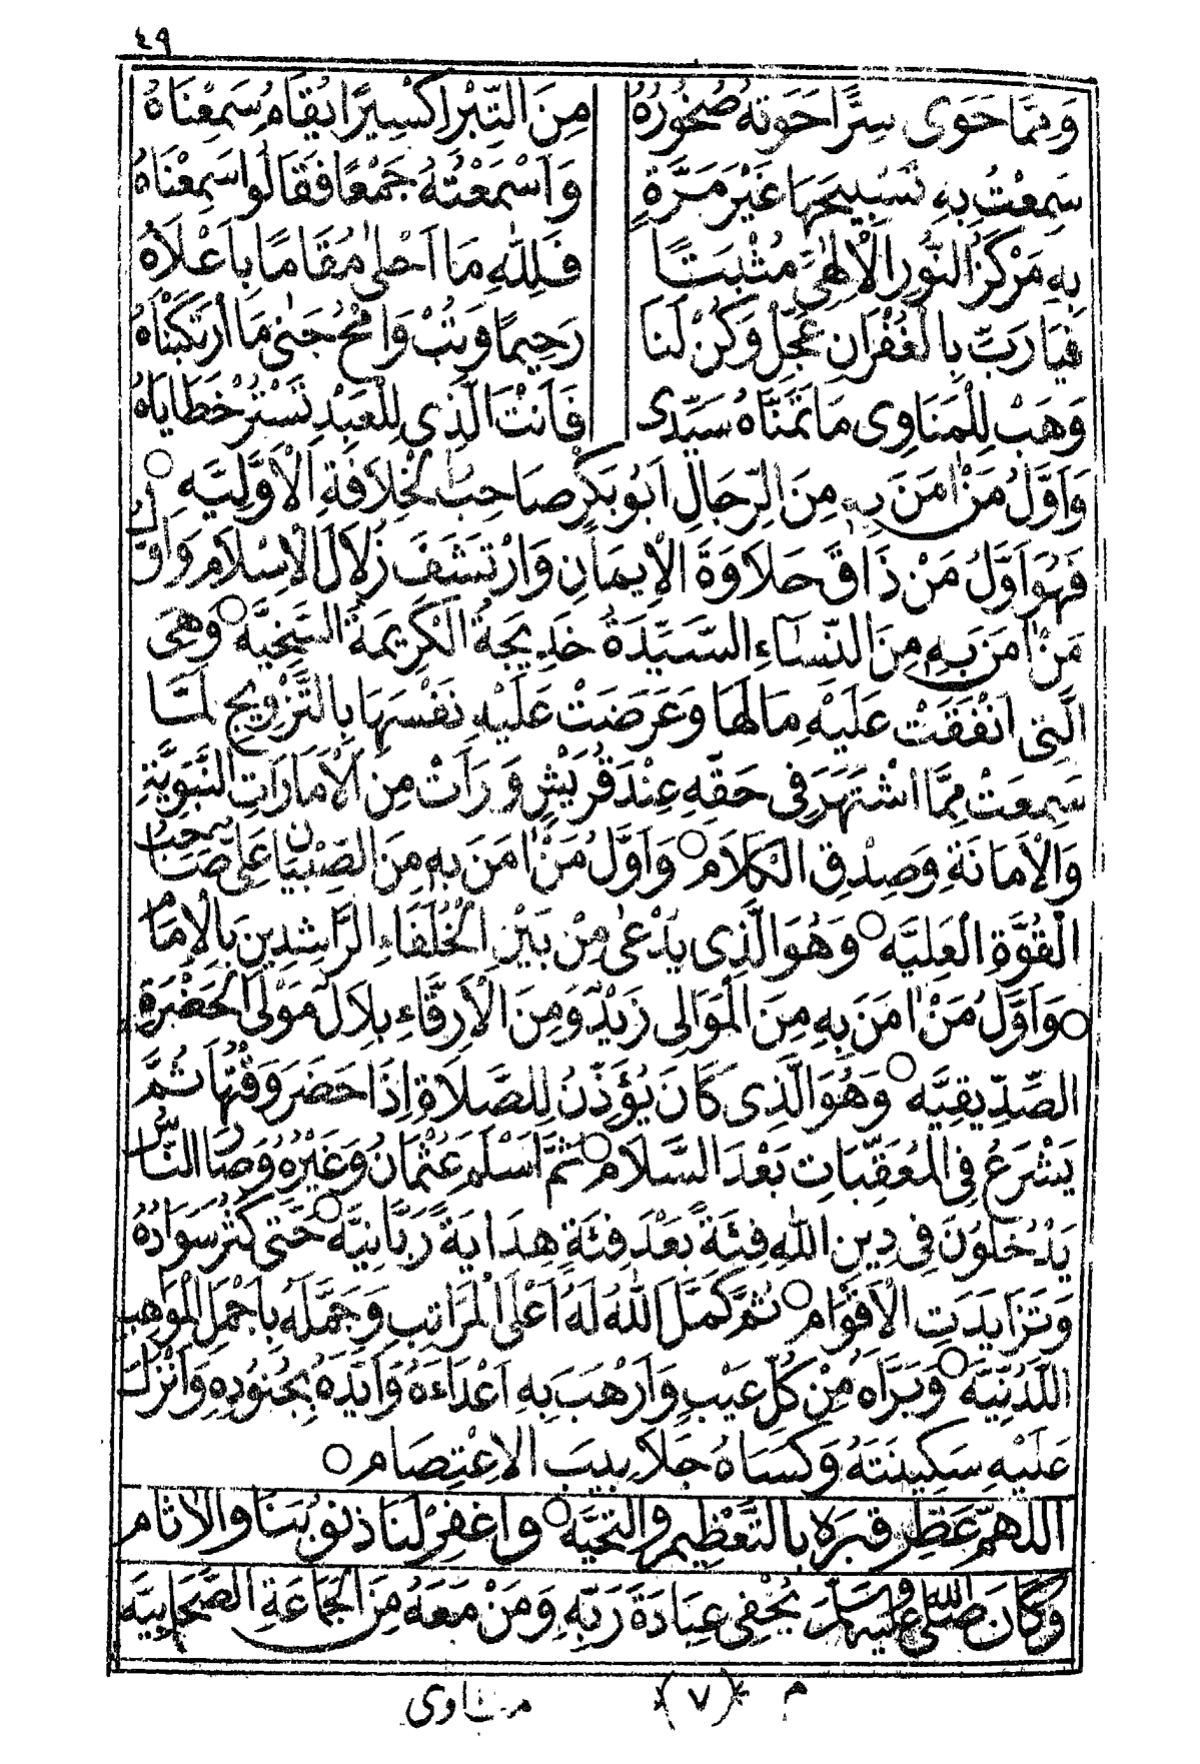 ٤٩
وَمِمَّا حَوَى سِرًّا حَوَتْهُ صُخُورُهُ مِنَ التِّبْرِ اَكْسِيرًا يُقَامُ سَمِعْنَاهُ
سَمِعْتُ بِهِ تَسْبِيحَهَا غَيْرَ مَرَّةٍ وَاَسْمَعْتُهُ جَمْعًا فَقَالُوا سَمِعْنَاهُ
بِهِ مَرْكَزُ النُّورِ الْاِلٰهِىِّ مُثْبَتًا فَلِلّٰهِ مَا اَحْلٰى مُقَامًا بِاَعْلَاهُ
فَيَارَبِّ بِالْغُفْرَانِ عَجِّلْ وَكُنْ لَنَا رَحِيمًا وَتُبْ وَامْحُ جَنٰى مَا ارْتَكَبْنَاهُ
وَهَبْ لِلْمَنَاوِى مَا تَمَنَّاهُ سَيِّدِى فَاَنْتَ الَّذِى لِلْعَبْدِ تَسْتُرُ خَطَايَاهُ
وَاَوَّلُ مَنْ اٰمَنَ بِهِ مِنَ الرِّجَالِ اَبُوبَكْرٍ صَاحِبُ الْخِلَافَةِ الْاَوَّلِيَّه
فَهُوَ اَوَّلُ مَنْ ذَاقَ حَلَاوَةَ الْاِيمَانِ وَارْتَشَفَ زُلَالَ الْاِسْلَام وَاَوَّلُ
مَنْ اٰمَنَ بِهِ مِنَ النِّسَاءِ السَّيِّدَةُ خَدِيجَةُ الْكَرِيمَةُ السَّخِيَّه وَهِىَ
الَّتِى اَنْفَقَتْ عَلَيْهِ مَالَهَا وَعَرَضَتْ عَلَيْهِ نَفْسَهَا بِالتَّزْوِيجِ لَمَّا
سَمِعَتْ مِمَّا اشْتَهَرَ فِى حَقِّهِ عِنْدَ قُرَيْشٍ وَرَأَتْ مِنَ الْاَمَارَاتِ النَّبَوِيَّةِ
وَالْاَمَانَةِ وَصِدْقِ الْكَلَام وَاَوَّلُ مَنْ اٰمَنَ بِهِ مِنَ الصِّبْيَانِ عَلِىٌّ صَاحِبُ
الْقُوَّةِ الْعَلِيَّه وَهُوَ الَّذِى يُدْعٰى مِنْ بَيْنِ الْخُلَفَاءِ الرَّاشِدِينَ بِالْاِمَام
وَاَوَّلُ مَنْ اٰمَنَ بِهِ مِنَ الْمَوَالِى زَيْدٌ وَمِنَ الْاَرِقَّاءِ بِلَالٌ مَوْلَى الْحَضْرَةِ
الصِّدِّيقِيَّه وَهُوَ الَّذِى كَانَ يُؤَذِّنُ لِلصَّلَاةِ اِذَا حَضَرَ وَقْتُهَا ثُمَّ
يَشْرَعُ فِى الْمُعَقِّبَاتِ بَعْدَ السَّلَام ثُمَّ اَسْلَمَ عُثْمَانُ وَغَيْرُهُ وَصَارَ النَّاسُ
يَدْخُلُونَ فِى دِينِ اللّٰهِ فِئَةً بَعْدَ فِئَةٍ هِدَايَةً رَبَّانِيَّه حَتّٰى كَثُرَ سَوَادُهُ
وَتَزَايَدَتِ الْاَقْوَام ثُمَّ كَمَّلَ اللّٰهُ لَهُ اَعْلَى الْمَرَاتِبِ وَجَمَّلَهُ بِاَجْمَلِ الْمَوَاهِبِ
اللَّدُنِّيَّه وَبَرَّاَهُ مِنْ كُلِّ عَيْبٍ وَاَرْهَبَ بِهِ اَعْدَاءَهُ وَاَيَّدَهُ بِجُنُودِهِ وَاَنْزَلَ
عَلَيْهِ سَكِينَتَهُ وَكَسَاهُ جَلَابِيبَ الْاِعْتِصَام
اللهمّ عَطِّر قَبرَه بالتَّعْظِيم والتحيَّه وَاغْفِرْ لَنَا ذنوبَنَا والآثام
وَكَانَ صَلَّى اللهُ عَلَيْهِ وَسَلَّمَ يُخْفِى عِبَادَةَ رَبِّهِ وَمَنْ مَعَهُ مِنَ الْجَمَاعَةِ الصَّحَابِيَّه
م (٧) مناوى